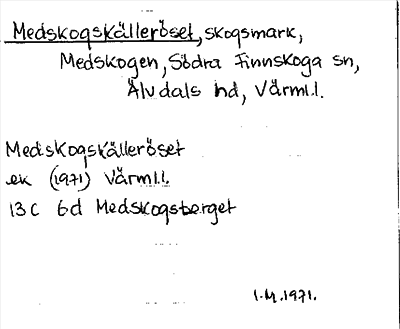 Medskogskälleröset, skogsmark,
Medskogen, Södra Finnskoga sn,
Älvdals hd, Värml.l.
Medskogskälleröset
ek (1971) Värml.l.
13 C 6d Medskogsberget
I.M.1971.